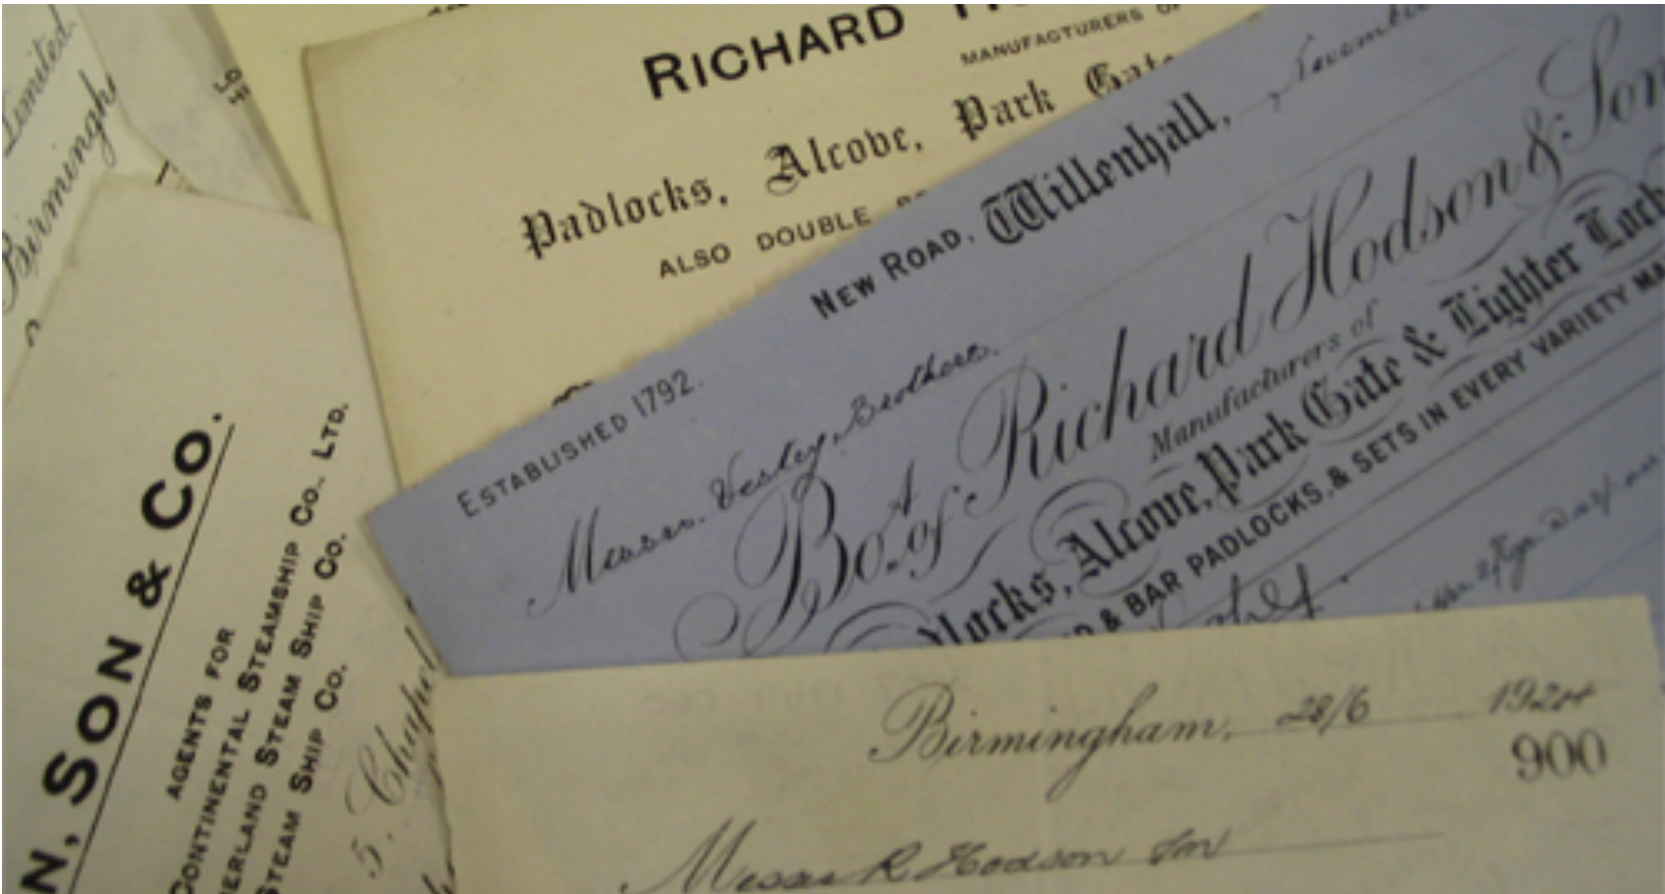 Limited
Birmingh
RICHARD
MANUFACTURERS
Padlocks, Alcove, Park Gate
ALSO DOUBLE
NEW ROAD, Willenhall,
ESTABLISHED 1792.
Messrs. Vesley Brothers.
Bo.t of Richard Hodson & Son
Manufacturers of
dlocks, Alcove, Park Gate & Lighter Lock
& BAR PADLOCKS, & SETS IN EVERY VARIETY MA
N, SON & CO.
AGENTS FOR
CONTINENTAL STEAMSHIP CO., LTD.
ERLAND STEAM SHIP CO.
STEAM SHIP CO.
5. Chapel
Birmingham, 28/6 1924
900
Messrs R Hodson Son